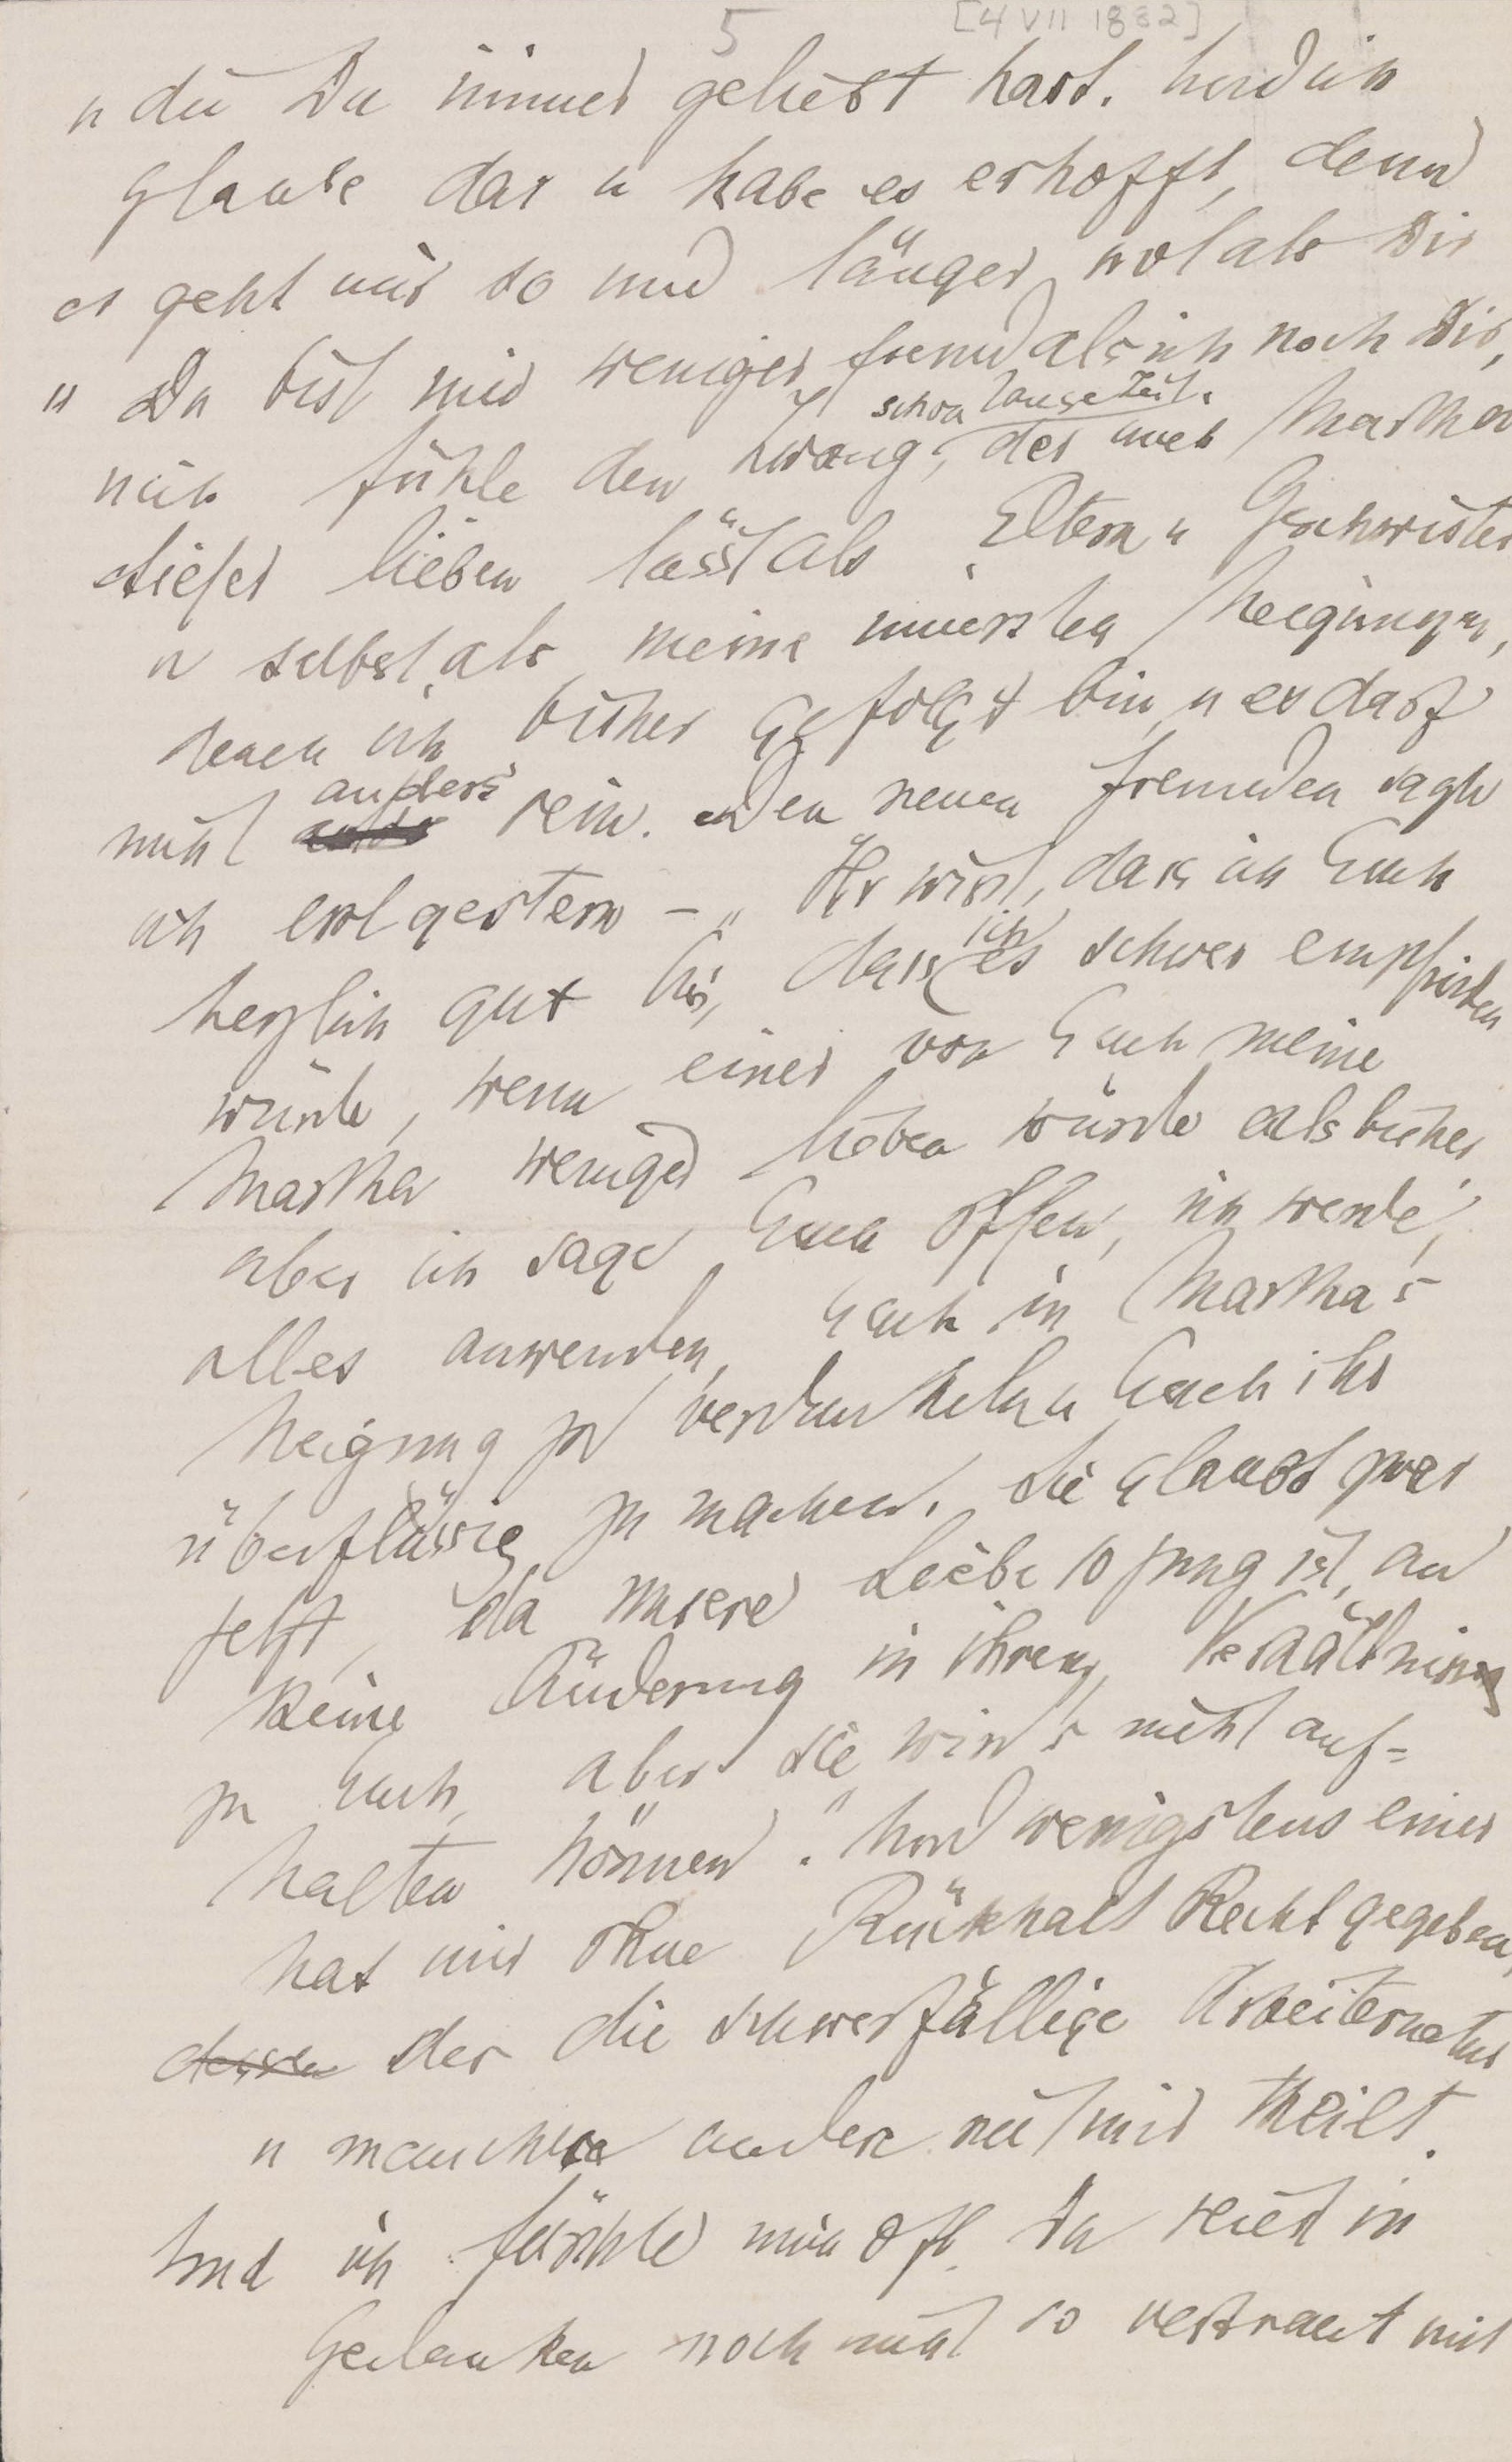 5 [4 VII 1882]
u die Du immer geliebt hast. Und ich
glaube das u habe es erhofft, denn
es geht mir so und länger wol als Dir
u Du bist mir weniger fremd als ich noch Dir,
ich fühle den Zwang, schon lange Zeit. der mich Martha
tiefer lieben lässt als Eltern u Geschwister
u selbst als meine innersten Neigungen,
denen ich bisher gefolgt bin, u es darf
nicht anders sein. Den neuen Fremden sagte
ich erst gestern – „Ihr wißt, dass ich Euch
herzlich gut bin, dass ich es schwer empfinden
würde, wenn einer von Euch meine
Martha weniger lieben würde als bisher
aber ich sage Euch offen, ich werde
alles anwenden, Euch in Martha's
Neigung zu verdunkeln u Euch ihr
überflüssig zu machen. Sie glaubt zwar
jetzt, da unsere Liebe so jung ist, an
keine Änderung in ihrem Verhältniss
zu Euch, aber sie wird's nicht auf=
halten können." Und wenigstens einer
hat mir ohne Rückhalt Recht gegeben,
der die schwerfällige Arbeiternatur
u manches andere mit mir theilt.
Und ich fürchte mich oft, Du seiest in
Gedanken noch nicht so vertraut mit